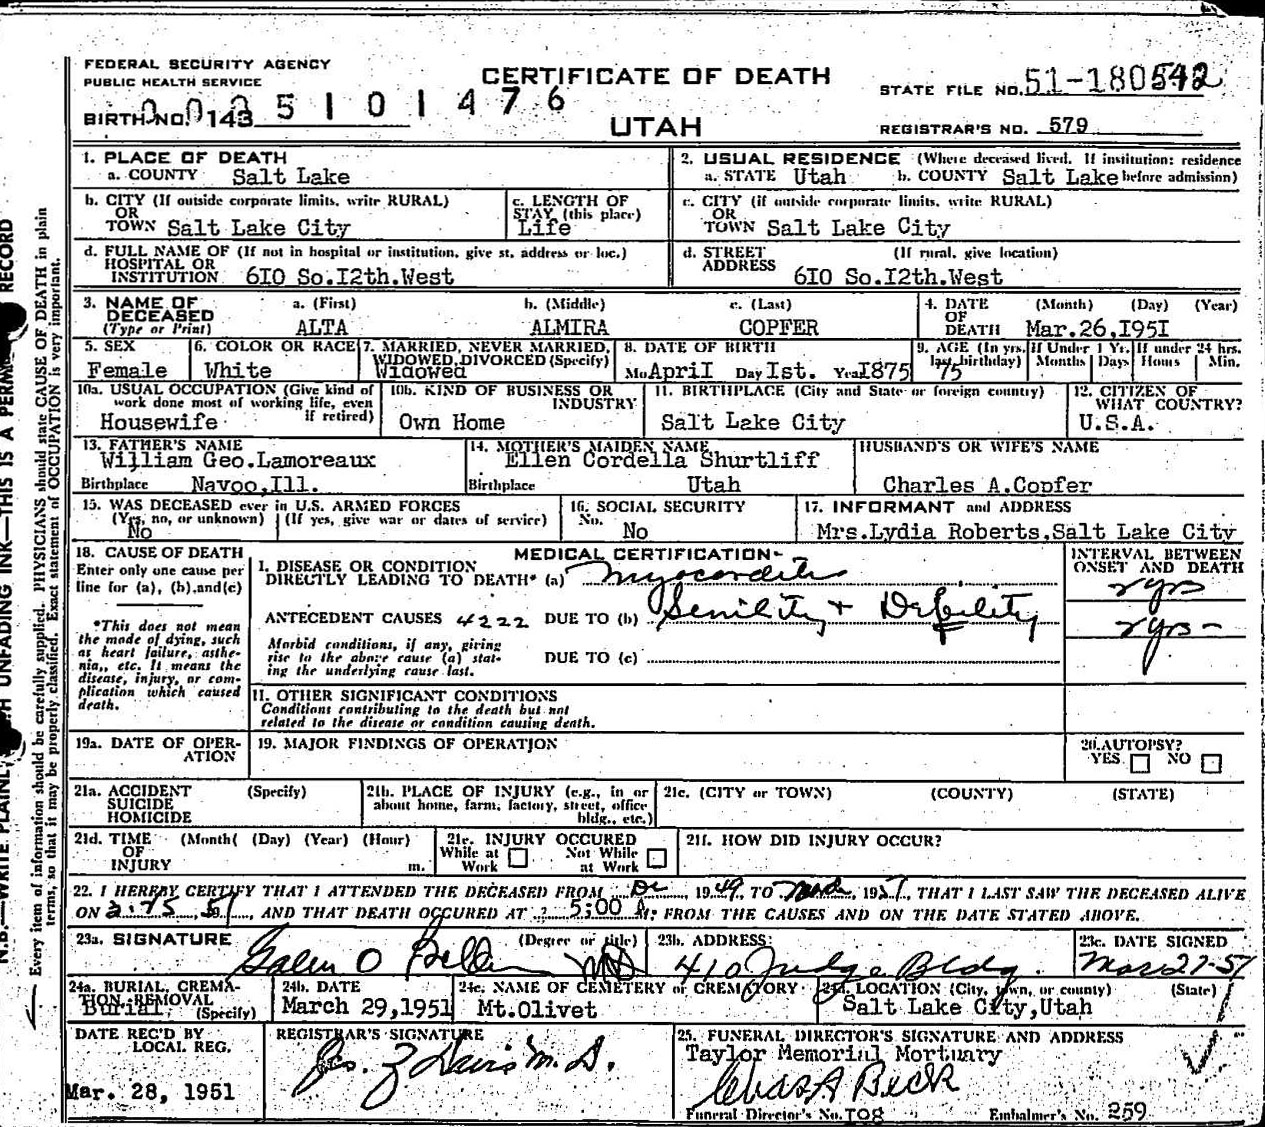 FEDERAL SECURITY AGENCY
PUBLIC HEALTH SERVICE
CERTIFICATE OF DEATH
STATE FILE NO. 51-180542
BIRTH NO. 0143 5101476
UTAH
REGISTRAR'S NO. 579
1. PLACE OF DEATH
a. COUNTY Salt Lake
2. USUAL RESIDENCE (Where deceased lived. If institution: residence
a. STATE Utah b. COUNTY Salt Lake before admission)
b. CITY (If outside corporate limits, write RURAL)
OR
TOWN Salt Lake City
c. LENGTH OF
STAY (this place)
Life
c. CITY (if outside corporate limits, write RURAL)
OR
TOWN Salt Lake City
d. FULL NAME OF (If not in hospital or institution, give st. address or loc.)
HOSPITAL OR
INSTITUTION 6I0 So.I2th.West
d. STREET (If rural, give location)
ADDRESS 6I0 So.I2th.West
3. NAME OF DECEASED
(Type or Print)
a. (First) b. (Middle) c. (Last)
ALTA ALMIRA COPFER
4. DATE (Month) (Day) (Year)
OF
DEATH Mar.26,I95I
5. SEX
Female
6. COLOR OR RACE
White
7. MARRIED, NEVER MARRIED,
WIDOWED, DIVORCED (Specify)
Widowed
8. DATE OF BIRTH
Mo April Day Ist. Yea I875
9. AGE (In yrs. last birthday)
75
If Under 1 Yr.
Months Days
If under 24 hrs.
Hours Min.
10a. USUAL OCCUPATION (Give kind of
work done most of working life, even
if retired)
Housewife
10b. KIND OF BUSINESS OR
INDUSTRY
Own Home
11. BIRTHPLACE (City and State or foreign country)
Salt Lake City
12. CITIZEN OF
WHAT COUNTRY?
U.S.A.
13. FATHER'S NAME
William Geo.Lamoreaux
Birthplace Navoo,Ill.
14. MOTHER'S MAIDEN NAME
Ellen Cordella Shurtliff
Birthplace Utah
HUSBAND'S OR WIFE'S NAME
Charles A.Copfer
15. WAS DECEASED ever in U.S. ARMED FORCES
(Yes, no, or unknown) (If yes, give war or dates of service)
No
16. SOCIAL SECURITY
No.
No
17. INFORMANT and ADDRESS
Mrs.Lydia Roberts,Salt Lake City
18. CAUSE OF DEATH
Enter only one cause per
line for (a), (b),and(c)
*This does not mean
the mode of dying, such
as heart failure, asthe-
nia,, etc. It means the
disease, injury, or com-
plication which caused
death.
MEDICAL CERTIFICATION
1. DISEASE OR CONDITION
DIRECTLY LEADING TO DEATH* (a) Myocarditis
ANTECEDENT CAUSES 4222 DUE TO (b) Senility + Debility
Morbid conditions, if any, giving
rise to the above cause (a) stat-
ing the underlying cause last.
DUE TO (c)
INTERVAL BETWEEN
ONSET AND DEATH
2 yrs
2 yrs -
11. OTHER SIGNIFICANT CONDITIONS
Conditions contributing to the death but not
related to the disease or condition causing death.
19a. DATE OF OPER-
ATION
19. MAJOR FINDINGS OF OPERATION
20. AUTOPSY?
YES NO
21a. ACCIDENT (Specify)
SUICIDE
HOMICIDE
21b. PLACE OF INJURY (e.g., in or
about home, farm, factory, street, office
bldg., etc.)
21c. (CITY or TOWN) (COUNTY) (STATE)
21d. TIME (Month( (Day) (Year) (Hour)
OF
INJURY m.
21e. INJURY OCCURED
While at Not While
Work at Work
21f. HOW DID INJURY OCCUR?
22. I HEREBY CERTIFY THAT I ATTENDED THE DECEASED FROM De, 1949, TO March, 1951, THAT I LAST SAW THE DECEASED ALIVE
ON 51, AND THAT DEATH OCCURED AT 5:00 A M: FROM THE CAUSES AND ON THE DATE STATED ABOVE.
23a. SIGNATURE (Degree or title)
Galen O MD
23b. ADDRESS:
410 Judge Bldg.
23c. DATE SIGNED
Mar 27-51
24a. BURIAL, CREMA-
TION, REMOVAL
Burial, (Specify)
24b. DATE
March 29,1951
24c. NAME OF CEMETERY or CREMATORY
Mt.Olivet
24d. LOCATION (City, town, or county) (State)
Salt Lake City,Utah
DATE REC'D BY
LOCAL REG.
Mar. 28, 1951
REGISTRAR'S SIGNATURE
Davis M.D.
25. FUNERAL DIRECTOR'S SIGNATURE AND ADDRESS
Taylor Memorial Mortuary
Chas A Beck
Funeral Director's No. I08 Embalmer's No. 259
Every item of information should be carefully supplied. PHYSICIANS should state CAUSE OF DEATH in plain
terms, so that it may be properly classified. Exact statement of OCCUPATION is very important.
N.B.—WRITE PLAINLY UNFADING INK—THIS IS A PERM RECORD